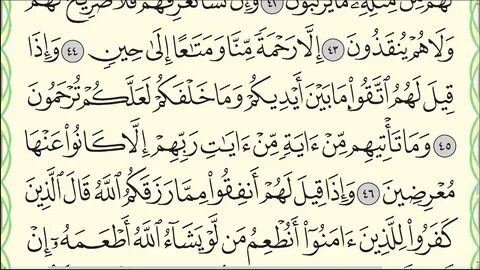 لَهُم مِّن مِّثْلِهِۦ مَا يَرْكَبُونَ ٤٢ وَإِن نَّشَأْ نُغْرِقْهُمْ فَلَا صَرِيخَ لَهُمْ
وَلَا هُمْ يُنقَذُونَ ٤٣ إِلَّا رَحْمَةً مِّنَّا وَمَتَـٰعًا إِلَىٰ حِينٍ ٤٤ وَإِذَا
قِيلَ لَهُمُ ٱتَّقُوا۟ مَا بَيْنَ أَيْدِيكُمْ وَمَا خَلْفَكُمْ لَعَلَّكُمْ تُرْحَمُونَ
٤٥ وَمَا تَأْتِيهِم مِّنْ ءَايَةٍ مِّنْ ءَايَـٰتِ رَبِّهِمْ إِلَّا كَانُوا۟ عَنْهَا
مُعْرِضِينَ ٤٦ وَإِذَا قِيلَ لَهُمْ أَنفِقُوا۟ مِمَّا رَزَقَكُمُ ٱللَّهُ قَالَ ٱلَّذِينَ
كَفَرُوا۟ لِلَّذِينَ ءَامَنُوٓا۟ أَنُطْعِمُ مَن لَّوْ يَشَآءُ ٱللَّهُ أَطْعَمَهُۥٓ إِنْ